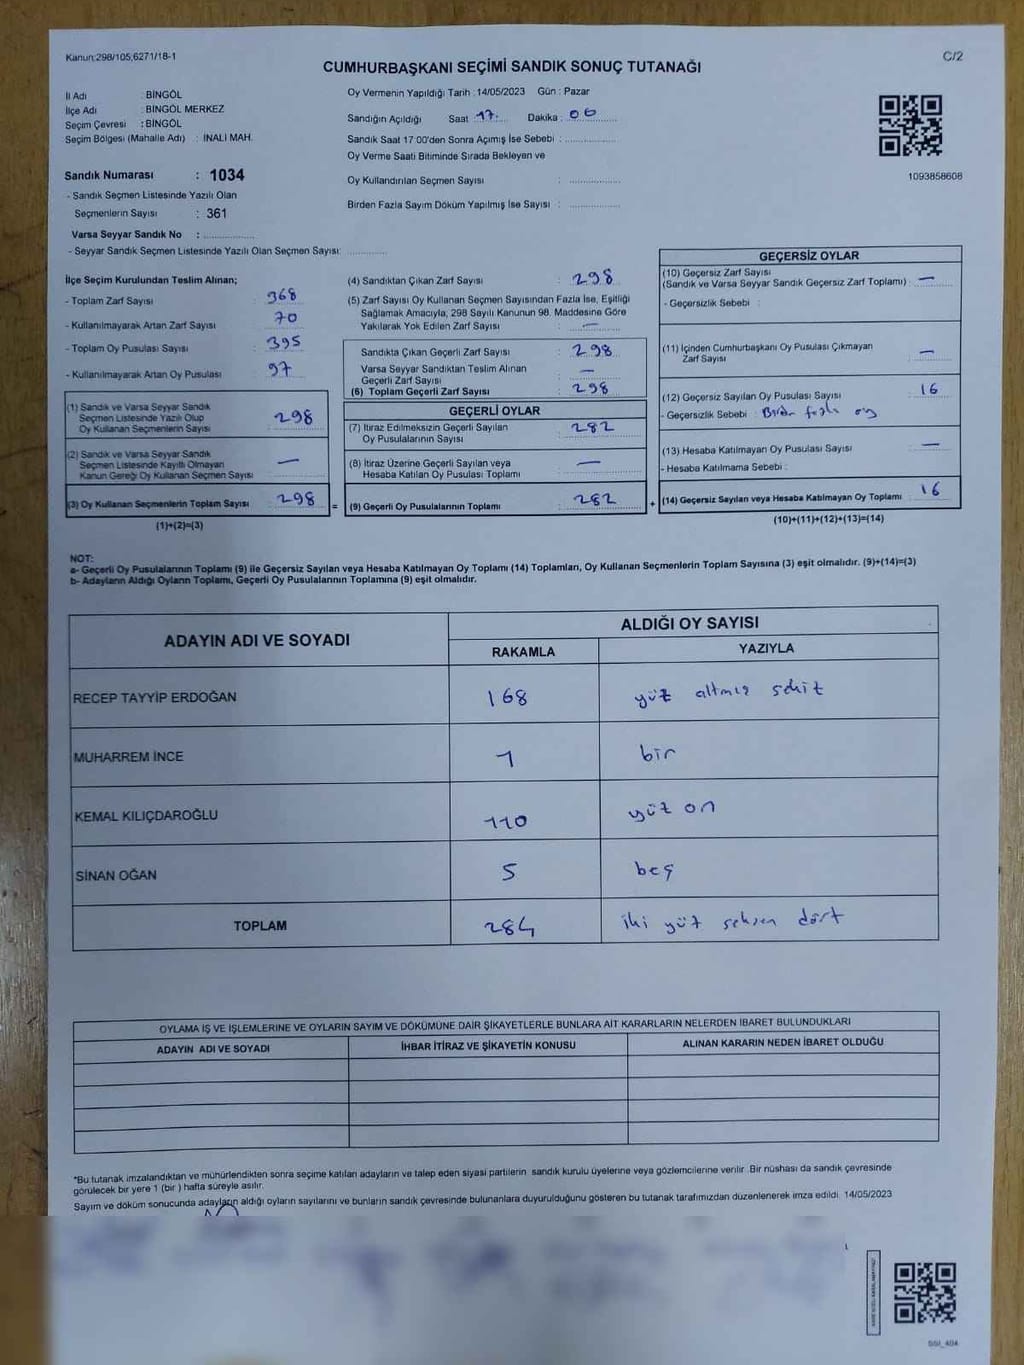 Kanun:298/105,6271/18-1
C/2
CUMHURBAŞKANI SEÇİMİ SANDIK SONUÇ TUTANAĞI
İl Adı : BİNGÖL
İlçe Adı : BİNGÖL MERKEZ
Seçim Çevresi : BİNGÖL
Seçim Bölgesi (Mahalle Adı) : İNALİ MAH.
Sandık Numarası : 1034
- Sandık Seçmen Listesinde Yazılı Olan
Seçmenlerin Sayısı : 361
Varsa Seyyar Sandık No :
- Seyyar Sandık Seçmen Listesinde Yazılı Olan Seçmen Sayısı:
Oy Vermenin Yapıldığı Tarih : 14/05/2023 Gün : Pazar
Sandığın Açıldığı Saat : 17 Dakika : 06
Sandık Saat 17:00'den Sonra Açımış İse Sebebi :
Oy Verme Saati Bitiminde Sırada Bekleyen ve
Oy Kullandırılan Seçmen Sayısı :
Birden Fazla Sayım Döküm Yapılmış İse Sayısı :
1093858608
İlçe Seçim Kurulundan Teslim Alınan;
- Toplam Zarf Sayısı : 368
- Kullanılmayarak Artan Zarf Sayısı : 70
- Toplam Oy Pusulası Sayısı : 395
- Kullanılmayarak Artan Oy Pusulası : 97
(1) Sandık ve Varsa Seyyar Sandık
Seçmen Listesinde Yazılı Olup
Oy Kullanan Seçmenlerin Sayısı : 298
(2) Sandık ve Varsa Seyyar Sandık
Seçmen Listesinde Kayıtlı Olmayan
Kanun Gereği Oy Kullanan Seçmen Sayısı : —
(3) Oy Kullanan Seçmenlerin Toplam Sayısı : 298
(1)+(2)=(3)
(4) Sandıktan Çıkan Zarf Sayısı : 298
(5) Zarf Sayısı Oy Kullanan Seçmen Sayısından Fazla İse, Eşitliği
Sağlamak Amacıyla, 298 Sayılı Kanunun 98. Maddesine Göre
Yakılarak Yok Edilen Zarf Sayısı : —
Sandıkta Çıkan Geçerli Zarf Sayısı : 298
Varsa Seyyar Sandıktan Teslim Alınan
Geçerli Zarf Sayısı : —
(6) Toplam Geçerli Zarf Sayısı : 298
GEÇERLİ OYLAR
(7) İtiraz Edilmeksizin Geçerli Sayılan
Oy Pusulalarının Sayısı : 282
(8) İtiraz Üzerine Geçerli Sayılan veya
Hesaba Katılan Oy Pusulası Toplamı : —
= (9) Geçerli Oy Pusulalarının Toplamı : 282 +
GEÇERSİZ OYLAR
(10) Geçersiz Zarf Sayısı
(Sandık ve Varsa Seyyar Sandık Geçersiz Zarf Toplamı) : —
- Geçersizlik Sebebi :
(11) İçinden Cumhurbaşkanı Oy Pusulası Çıkmayan
Zarf Sayısı : —
(12) Geçersiz Sayılan Oy Pusulası Sayısı : 16
- Geçersizlik Sebebi : Birden fazla oy
(13) Hesaba Katılmayan Oy Pusulası Sayısı : —
- Hesaba Katılmama Sebebi :
(14) Geçersiz Sayılan veya Hesaba Katılmayan Oy Toplamı : 16
(10)+(11)+(12)+(13)=(14)
NOT:
a- Geçerli Oy Pusulalarının Toplamı (9) ile Geçersiz Sayılan veya Hesaba Katılmayan Oy Toplamı (14) Toplamları, Oy Kullanan Seçmenlerin Toplam Sayısına (3) eşit olmalıdır. (9)+(14)=(3)
b- Adayların Aldığı Oyların Toplamı, Geçerli Oy Pusulalarının Toplamına (9) eşit olmalıdır.
ADAYIN ADI VE SOYADI ALDIĞI OY SAYISI
RAKAMLA YAZIYLA
RECEP TAYYİP ERDOĞAN 168 yüz altmış sekiz
MUHARREM İNCE 1 bir
KEMAL KILIÇDAROĞLU 110 yüz on
SİNAN OĞAN 5 beş
TOPLAM 284 iki yüz seksen dört
OYLAMA İŞ VE İŞLEMLERİNE VE OYLARIN SAYIM VE DÖKÜMÜNE DAİR ŞİKAYETLERLE BUNLARA AİT KARARLARIN NELERDEN İBARET BULUNDUKLARI
ADAYIN ADI VE SOYADI İHBAR İTİRAZ VE ŞİKAYETİN KONUSU ALINAN KARARIN NEDEN İBARET OLDUĞU
*Bu tutanak imzalandıktan ve mühürlendikten sonra seçime katılan adayların ve talep eden siyasi partilerin sandık kurulu üyelerine veya gözlemcilerine verilir. Bir nüshası da sandık çevresinde
görülecek bir yere 1 (bir ) hafta süreyle asılır.
Sayım ve döküm sonucunda adayların aldığı oyların sayılarını ve bunların sandık çevresinde bulunanlara duyurulduğunu gösteren bu tutanak tarafımızdan düzenlenerek imza edildi. 14/05/2023